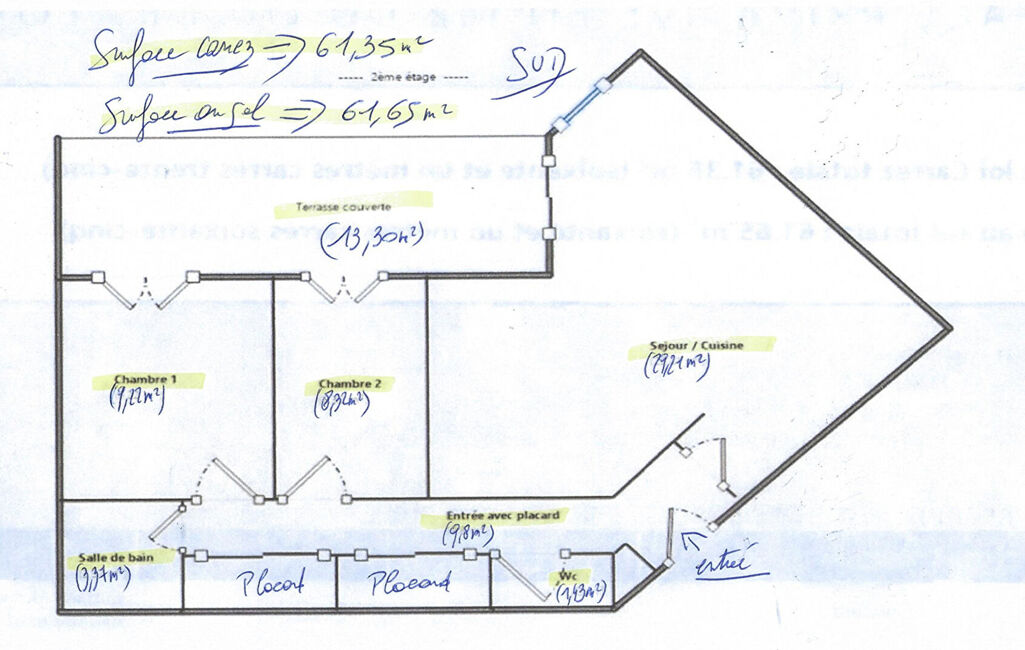 Surface carrez => 61,35 m²
----- 2ème étage -----
SUD
Surface au sol => 61,65 m²
Loi Carrez totale : 61.35 m² (soixante et un mètres carrés trente-cinq)
au sol totale : 61.65 m² (soixante et un mètres carrés soixante-cinq)
Terrasse couverte
(13,30m²)
Sejour / Cuisine
(29,21m²)
Chambre 1
(9,22m²)
Chambre 2
(8,32m²)
Entrée avec placard
(9,8m²)
Salle de bain
(3,37m²)
Placart
Placard
Wc
(1,43m²)
entrée